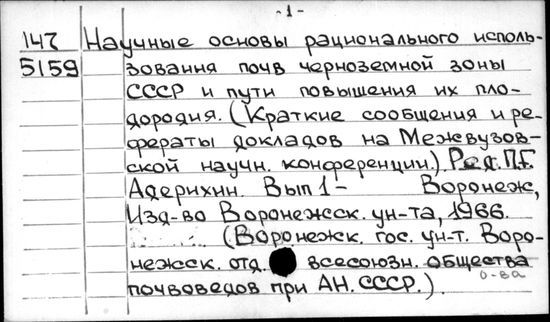 -1-
147 Научные основы рационального исполь-
5159 зования почв черноземной зоны
СССР и пути повышения их пло-
дородия. (Краткие сообщения и ре-
фераты докладов на Межвузов-
ской научн. конференции.) Ред. П.Г.
Адерихин. Вып 1- Воронеж,
Изд-во Воронежск. ун-та, 1966.
(Воронежк. гос. ун-т. Воро-
нежск. отд. всесоюзн. общества
о-ва
почвоведов при АН. СССР.).